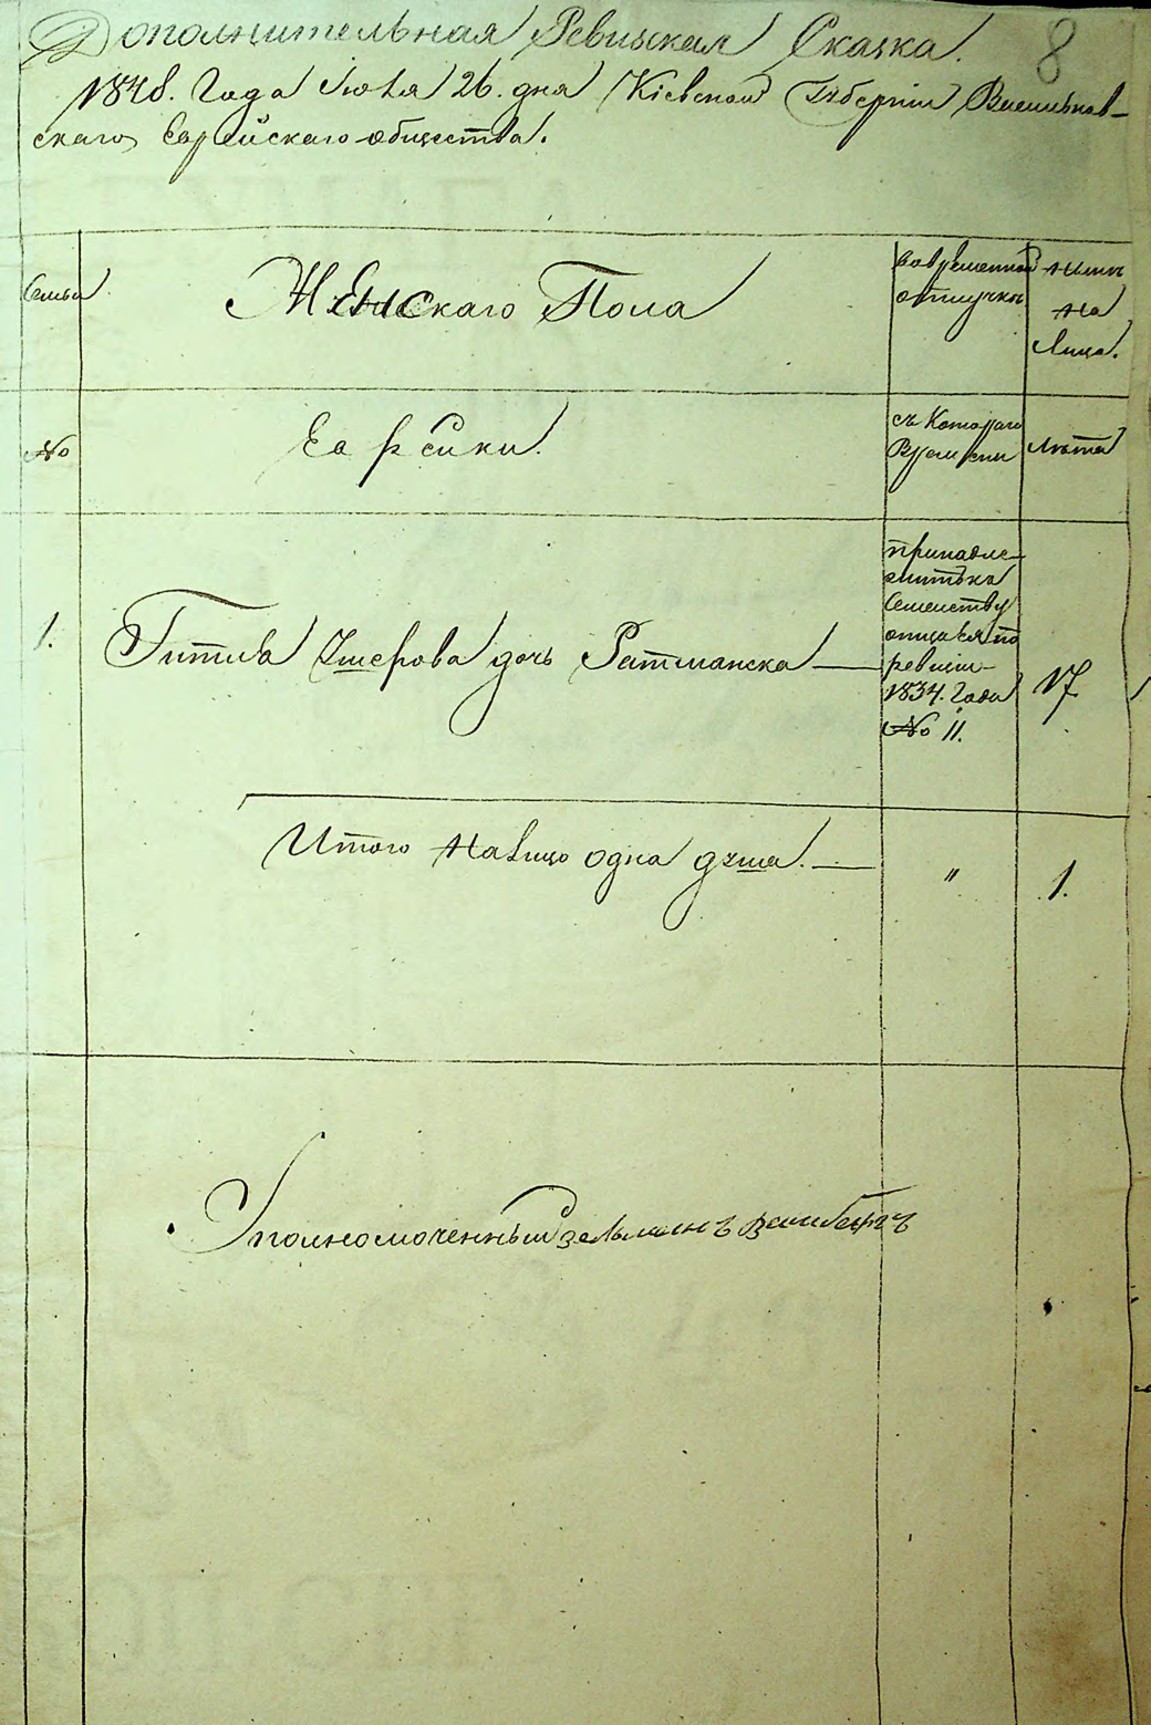 Дополнительная Ревизская Сказка. 8
1848. Года Июля 26. дня Кіевской Губерніи Васильков-
скаго Еврейскаго общества.
Семьи
Женскаго Пола
Во временной
отлучки
Ныне
на
Лицо.
№
Еврейки.
съ Котораго
Времени
Лѣта
1.
Гитля Ушерова дочь Ратманска
принадле-
житъ ка
Семейству
по
ревизіи
1834. Года
№ 11.
17
Итого налицо одна душа.
"
1.
Уполномоченный Зельманъ Вайнбергъ